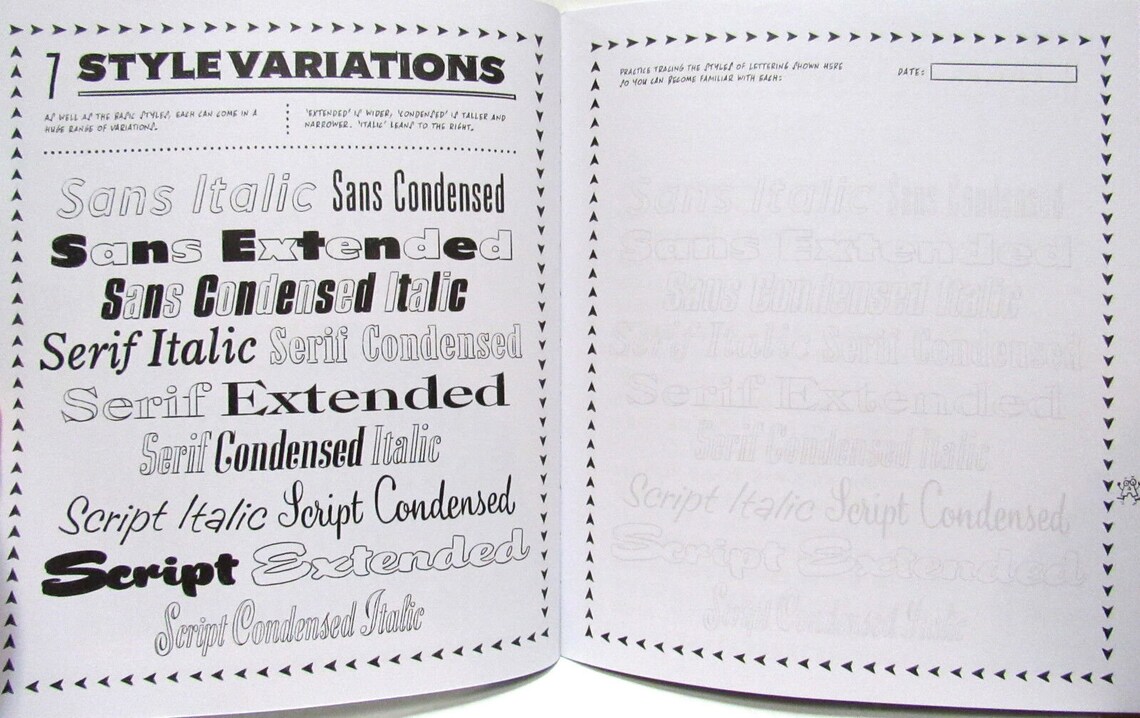 7 STYLE VARIATIONS
AS WELL AS THE BASIC STYLES, EACH CAN COME IN A
HUGE RANGE OF VARIATIONS.
'EXTENDED' IS WIDER, 'CONDENSED' IS TALLER AND
NARROWER. 'ITALIC' LEANS TO THE RIGHT.
Sans Italic Sans Condensed
Sans Extended
Sans Condensed Italic
Serif Italic Serif Condensed
Serif Extended
Serif Condensed Italic
Script Italic Script Condensed
Script Extended
Script Condensed Italic
PRACTICE TRACING THE STYLES OF LETTERING SHOWN HERE
SO YOU CAN BECOME FAMILIAR WITH EACH:
DATE:
Sans Italic Sans Condensed
Sans Extended
Sans Condensed Italic
Serif Italic Serif Condensed
Serif Extended
Serif Condensed Italic
Script Italic Script Condensed
Script Extended
Script Condensed Italic